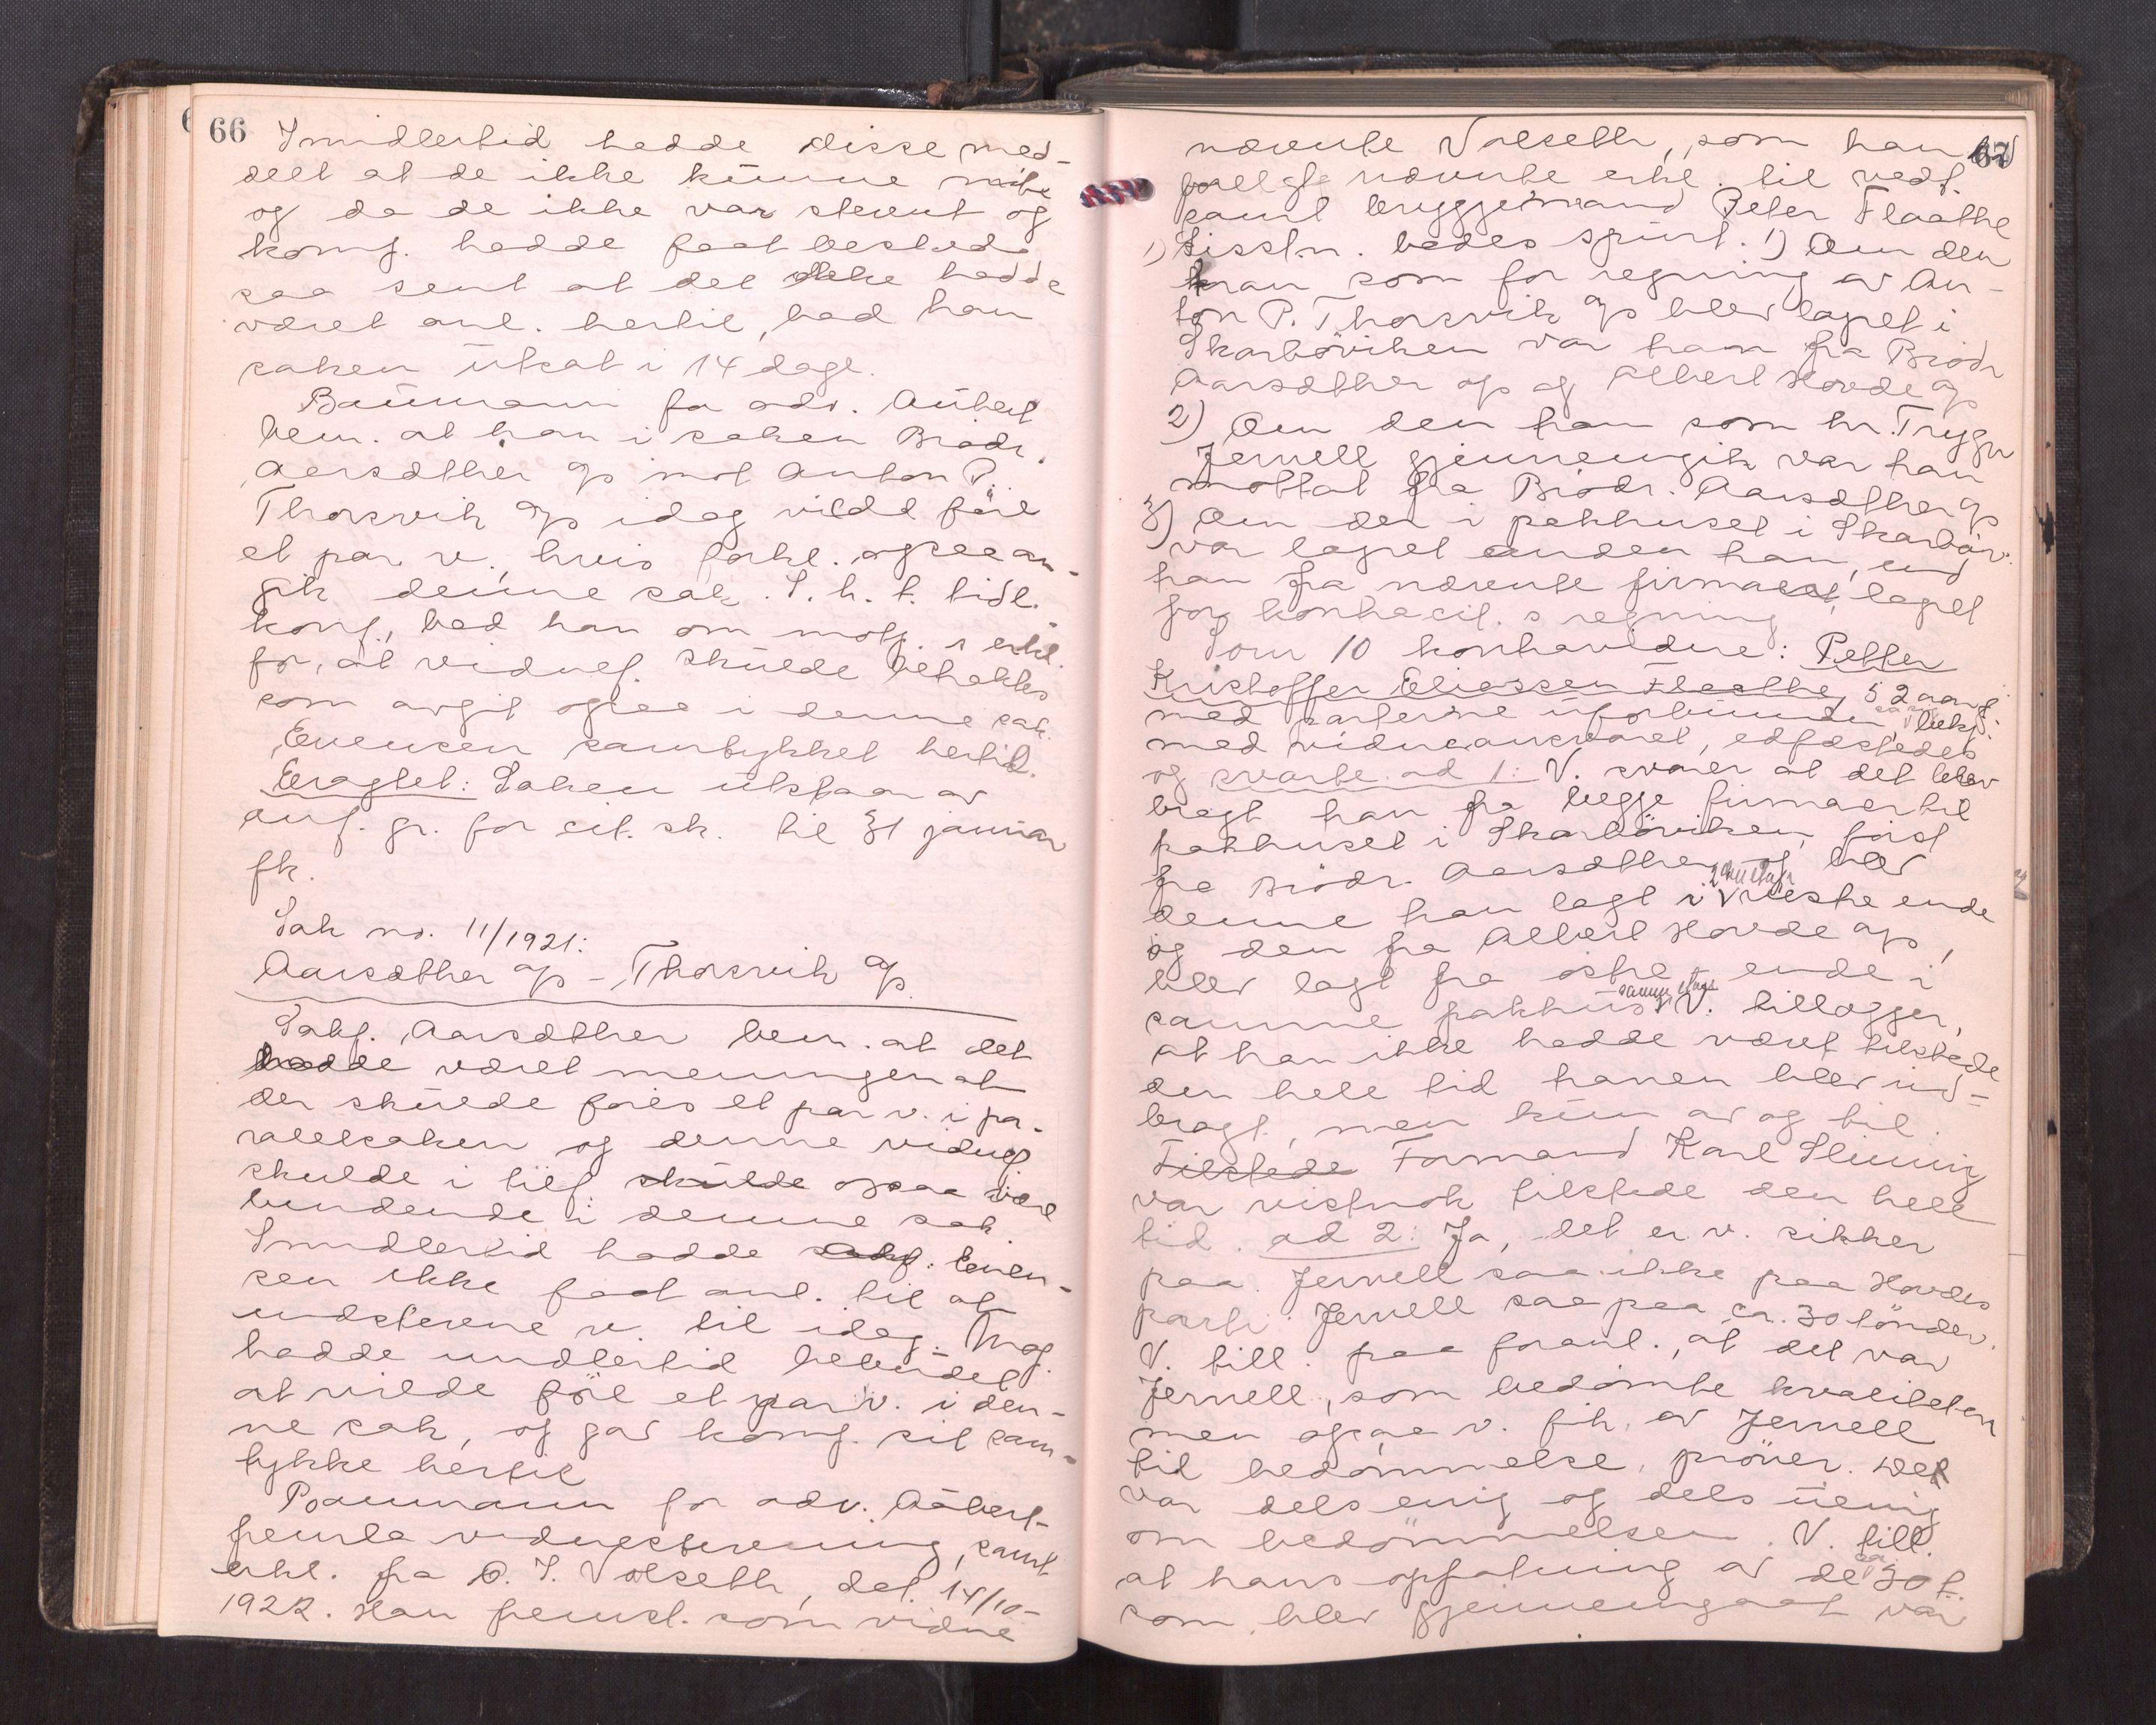 66
Imidlertid hadde disse med-
delt at de ikke kunne møte
og da de ikke var stevnt og
komp. hadde faat besked
saa sent at det ikke hadde
været anl. hertil, bad han
saken utsat i 14 dage.
Baumann for adv. Aubert
bem. at han i saken Brødr.
Aarsæther A/S mot Anton P.
Thorsvik A/S idag vilde føre
et par v., hvis forkl. ogsaa an-
gik denne sak. S. h. t. tidl.
komp., bad han om motp.s erkl.
for, at vidnef. skulde betraktes
som avgit ogsaa i denne sak.
Evensen samtykket hertil.
Eragtet: Saken utstaar av
anf. gr. for cit. sk. til 31 januar
fk.
Sak no. 11/1921:
Aarsæther A/S - Thorsvik A/S.
Sakf. Aarsæther bem. at det
hadde været meningen at
der skulde føres et par v. i pa-
ralelsaken og denne vidnef.
skulde i tilf. skulde ogsaa være
bindende i denne sak.
Imidlertid hadde sakf. Even-
sen ikke faat anl. til at
indstevne v. til idag. Mag.
hadde imidlertid bebudet
at vilde føre et par v. i den-
ne sak, og gav komp. sit sam-
tykke hertil
Baumann for adv. Aubert
freml. vidnestevning, samt
erkl. fra O. I. Volseth, dat. 14/10-
1922. Han fremst. som vidne
67
nævnte Volseth, som han
forelagte nævnte erkl. til vedt.
samt bryggemand Peter Flaathe
1) Sisstn. bedes spurt. 1) Om den
kran som for regning av An-
ton P. Thorsvik A/S blev lagret i
Skarbøviken var ham fra Brødr
Aarsæther A/S og Albert Hovde A/S
2) Om den ham som hr. Trygve
Jervell gjennemgik var ham
mottat fra Brødr. Aarsæther A/S
3) Om der i pakhuset i Skarbøv.
var lagret anden ham, end
ham fra nævnte firmaer, lagret
for konhacit.s regning
Som 10 konhavidne: Petter
Kristoffer Eliassen Flaathe, 52 aar g.
med parterne uforbunden, bekj.
med vidneansvaret, edfæstedes
og svarte ad 1: V. svarer at det blev
bragt ham fra begge firmaer til
pakhuset i Skarbøviken, først
fra Brødr. Aarsæther og blev
2den etage
denne ham lagt i v vestre ende
og den fra Albert Hovde A/S,
blev lagt fra østre ende i
samme etage
samme pakhus v V. tillægger,
at han ikke hadde været tilstede
den hele tid hamen blev ind-
bragt, men kun av og til.
Tilstede Formand Karl Slinning
var vistnok tilstede den hele
tid. ad 2: Ja, det er v. sikker
paa. Jervell saa ikke paa Hovdes
parti. Jervell saa paa ca. 30 tønder.
V. till. paa foranl., at det var
Jervell, som bedømte kvaliteten
men ogsaa v. fik, av Jervell
til bedømmelse, prøver. Det
var dels enig og dels uenig
om bedømmelsen. V. till.
at hans opfatning av de ca. 30 t.
som blev gjennemgaat var